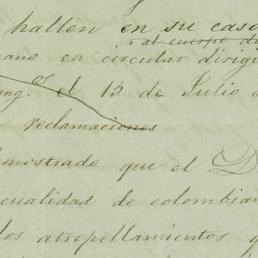 hallen en su caso
al cuerpo di
en circular dirigi
os
el 15 de Julio
reclamaciones
mostrado que el D
cualidad de colombian
los atropellamientos